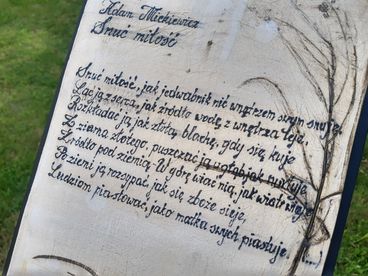 Adam Mickiewicz
Snuć miłość
Snuć miłość, jak jedwabnik nić wnętrzem swym snuje,
Lać ją z serca, jak źródło wodę z wnętrza leje,
Rozkładać ją jak złotą blachę, gdy się kuje
Z ziarna złotego, puszczać ją w głąb, jak nurtuje
Źródło pod ziemią. W górę wiać nią, jak wiatr wieje,
Po ziemi ją rozsypać, jak się zboże sieje,
Ludziom piastować, jako matka swych piastuje. (...)